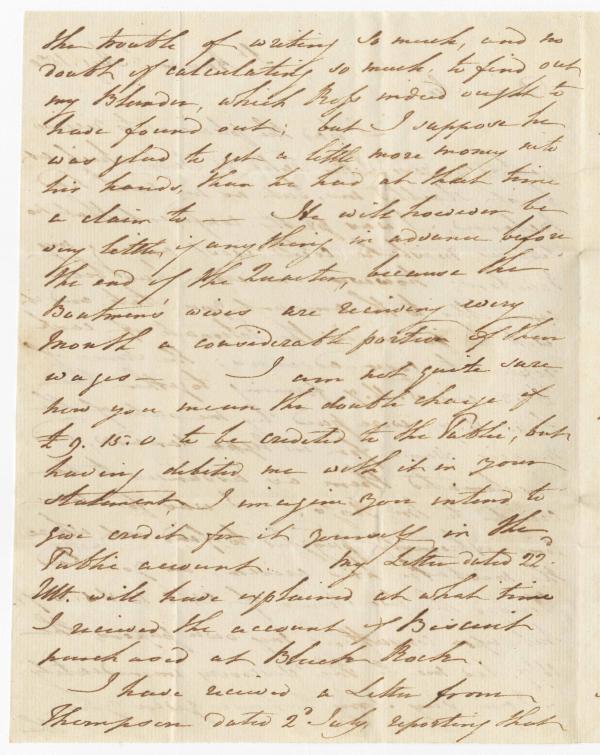 the trouble of writing so much, and no
doubt of calculating so much, to find out
my Blunder, which Ross indeed ought to
have found out; but I suppose he
was glad to get a little more money into
his hands, than he had at that time
a claim to — He will however be
very little, if anything in advance before
the end of the Quarter, because the
Boatmen's wives are receiving every
Month a considerable portion of their
wages — I am not quite sure
how you mean the double charge of
£9. 15. 0 to be credited to the Public, but
having debited me with it in your
statement, I imagine you intend to
give credit for it yourself in the
Public account. My Letter dated 22d.
Ult. will have explained at what time
I received the account of Biscuit
purchased at Black Rock.
I have received a Letter from
Thompson dated 2d July, reporting that